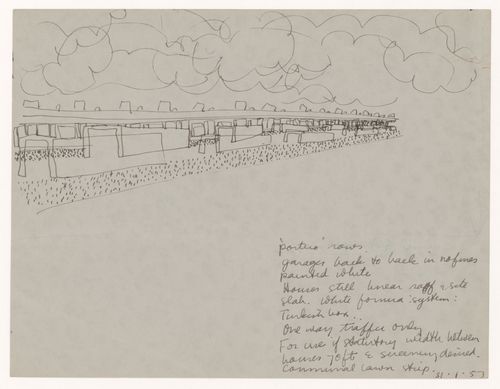 'portico' rows
garages back to back in no fines
painted white
Houses still linear roof & site
slab. White formica system:
Turkish box...
One way traffic only
For use if statutory width between
houses 70ft & screening desired.
Communal lawn strip.
31·1·57